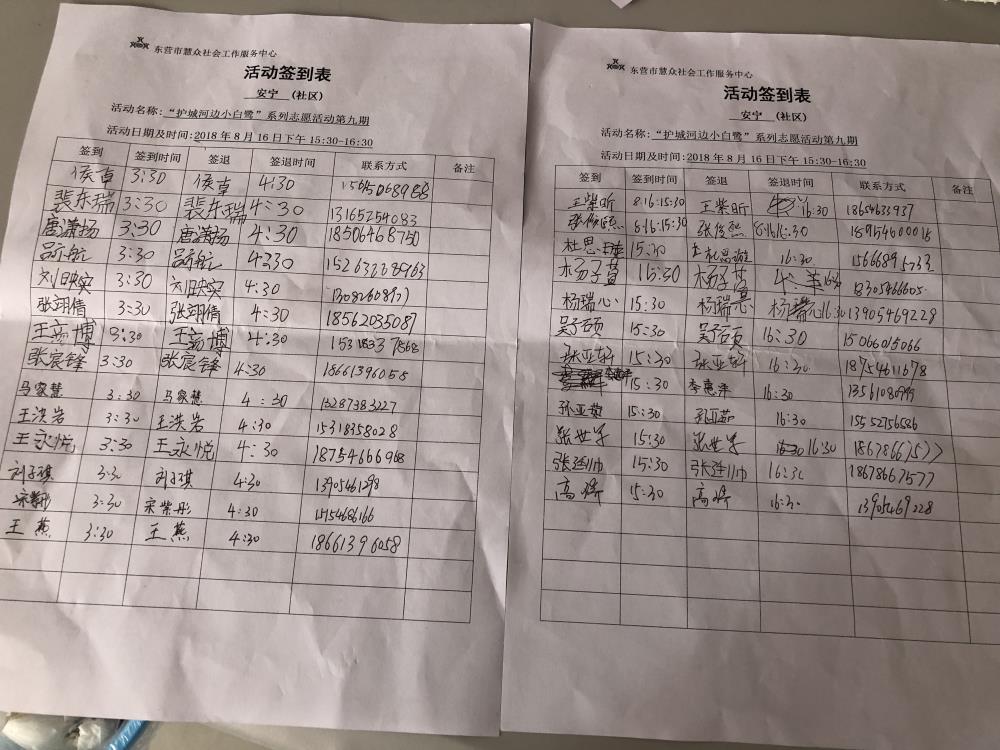 东营市慧众社会工作服务中心
活动签到表
安宁 (社区)
活动名称:“护城河边小白鹭”系列志愿活动第九期
活动日期及时间:2018年8月16日下午15:30-16:30
签到 签到时间 签退 签退时间 联系方式 备注
侯卓 3:30 侯卓 4:30
裴东瑞 3:30 裴东瑞 4:30 13165254083
唐潇扬 3:30 唐潇扬 4:30 18506468750
3:30 4230 15263228963
刘映实 3:30 刘映实 4:30
张翊倩 3:30 张翊倩 4:30 18562035087
王彦博 3:30 王彦博 4:30
张宸锋 3:30 张宸锋 4:30 18661396058
马家慧 3:30 马家慧 4:30 13287383227
王洪岩 3:30 王洪岩 4:30 15318358028
王永悦 3:30 王永悦 4:30 18754666968
刘子琪 3:30 刘子琪 4:30 13905461298
宋紫彤 3:30 宋紫彤 4:30
王燕 3:30 王燕 4:30 18661396058
东营市慧众社会工作服务中心
活动签到表
安宁 (社区)
活动名称:“护城河边小白鹭”系列志愿活动第九期
活动日期及时间:2018年8月16日下午15:30-16:30
签到 签到时间 签退 签退时间 联系方式 备注
王紫昕 8.16.15:30 王紫昕 16:30 18654633937
张俊熙 8.16.15:30 张俊熙 8.16.16:30
15:30 16:30
15:30
杨瑞心 15:30 杨瑞心 16:30 13905469228
15:30 16:30 15066015066
张亚轩 15:30 张亚轩 16:30 18754611678
15:30 李惠萍 16:30 13561080999
孙亚茹 15:30 孙亚茹 16:30 15552756586
15:30 16:30 18678667577
15:30 16:30 18678667577
15:30 16:30 13905469228